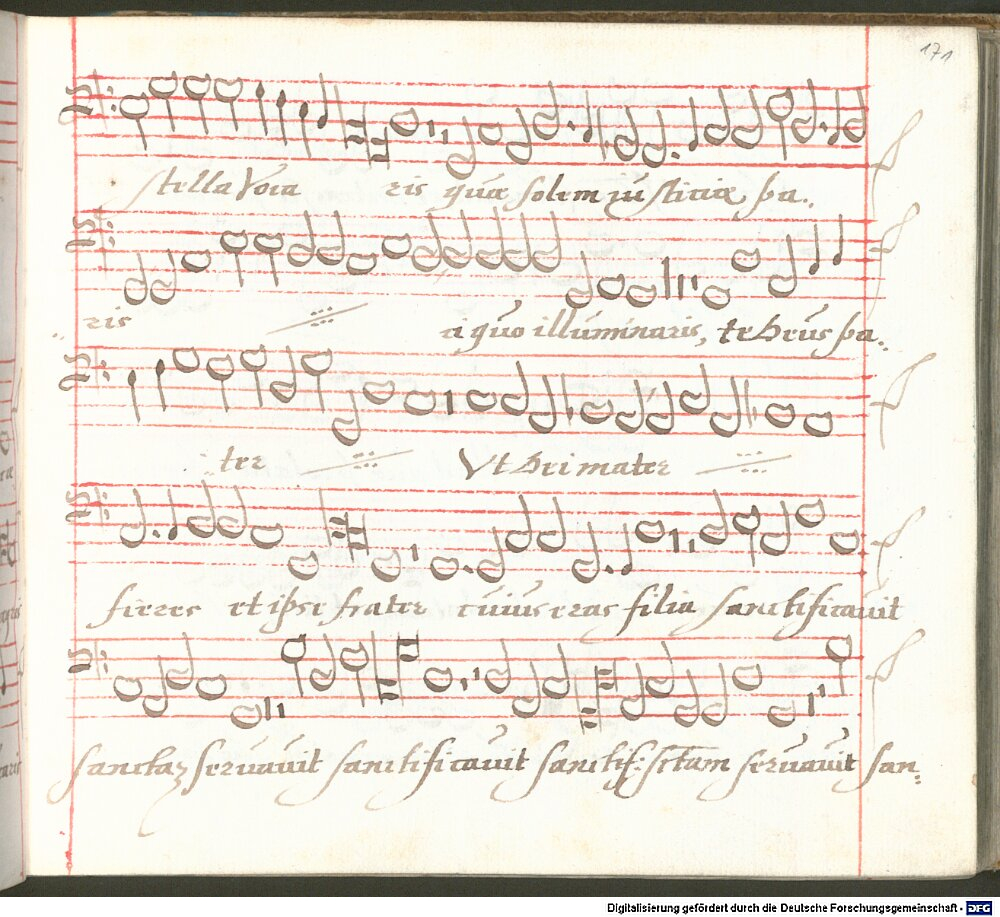 171
stella voca ris quæ solem iusticiæ pa:
ris a quo illuminaris, te Deus pa:
ter Ut Dei mater
fieres et ipse frater cuius eras filia sanctificauit
sanctaz seruauit sanctificauit sanctif: sctam seruauit san:
Digitalisierung gefördert durch die Deutsche Forschungsgemeinschaft - DFG